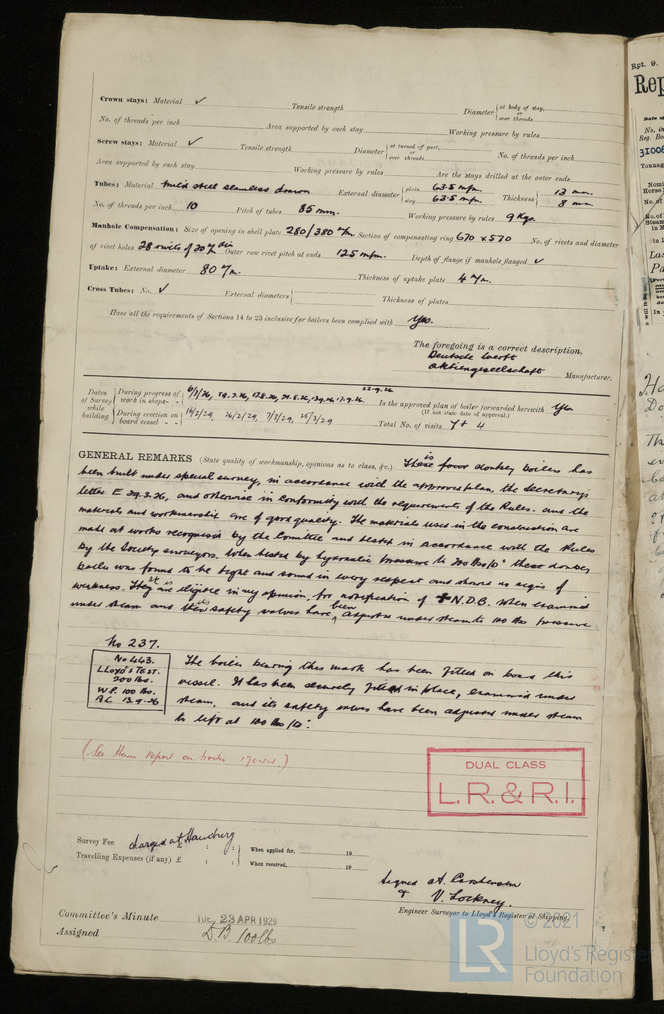 Crown stays: Material ✓ Tensile strength Diameter at body of stay, or over threads
No. of threads per inch Area supported by each stay Working pressure by rules
Screw stays: Material ✓ Tensile strength Diameter at turned off part, or over threads No. of threads per inch
Area supported by each stay Working pressure by rules Are the stays drilled at the outer ends
Tubes: Material Mild steel seamless drawn External diameter plain 63.5 m/m. stay 63.5 m/m. Thickness 13 mm. 8 mm
No. of threads per inch 10 Pitch of tubes 85 mm. Working pressure by rules 9 Kgs.
Manhole Compensation: Size of opening in shell plate 280/380 m/m Section of compensating ring 670 x 570 No. of rivets and diameter
of rivet holes 28 rivets of 30 m/m dia Outer row rivet pitch at ends 125 m/m. Depth of flange if manhole flanged ✓
Uptake: External diameter 80 m/m. Thickness of uptake plate 4 m/m.
Cross Tubes: No. ✓ External diameters Thickness of plates
Have all the requirements of Sections 14 to 23 inclusive for boilers been complied with Yes.
The foregoing is a correct description,
Deutsche Werft
Aktiengesellschaft Manufacturer.
22.9.26
Dates of Survey while building During progress of work in shops - -
Is the approved plan of boiler forwarded herewith Yes.
(If not state date of approval.)
During erection on board vessel - - 14/2/29, 26/2/29, 7/3/29, 25/3/29 Total No. of visits 7 + 4
GENERAL REMARKS (State quality of workmanship, opinions as to class, &c.) This is donkey boilers has
been built under special survey, in accordance with the approved plan, the Secretary's
letter E 29.3.26, and otherwise in conformity with the requirements of the Rules. and the
materials and workmanship are of good quality. The materials used in the construction are
made at works recognised by the Committee and tested in accordance with the Rules
by the Society surveyors. When tested by hydraulic pressure to 200 lbs/□" these donkey
boiler was found to be tight and sound in every respect and showed no signs of
weakness. They are is eligible in my opinion, for notification of ✠ N.D.B. When examined
under steam and their its safety valves have been adjusted under steam to 100 lbs pressure.
No 237.
No 443.
LLOYD'S TEST.
200 lbs.
W.P. 100 lbs.
A.C. 13.9.26
The boiler bearing this mark has been fitted on board this
vessel. It has been securely fitted in place, examined under
steam, and its safety valves have been adjusted under steam
to lift at 100 lbs/□".
(See Ham report on boiler)
DUAL CLASS
L.R. & R.I.
Survey Fee charged at Hamburg £ : : When applied for, 19
Travelling Expenses (if any) £ : : When received, 19
Signed A.
& V. Lockney.
Engineer Surveyor to Lloyd's Register of Shipping.
Committee's Minute TUE. 23 APR 1929
Assigned D.B. 100 lbs
Rpt. 9.
Rep
© 2021
LR
Lloyd's Register
Foundation